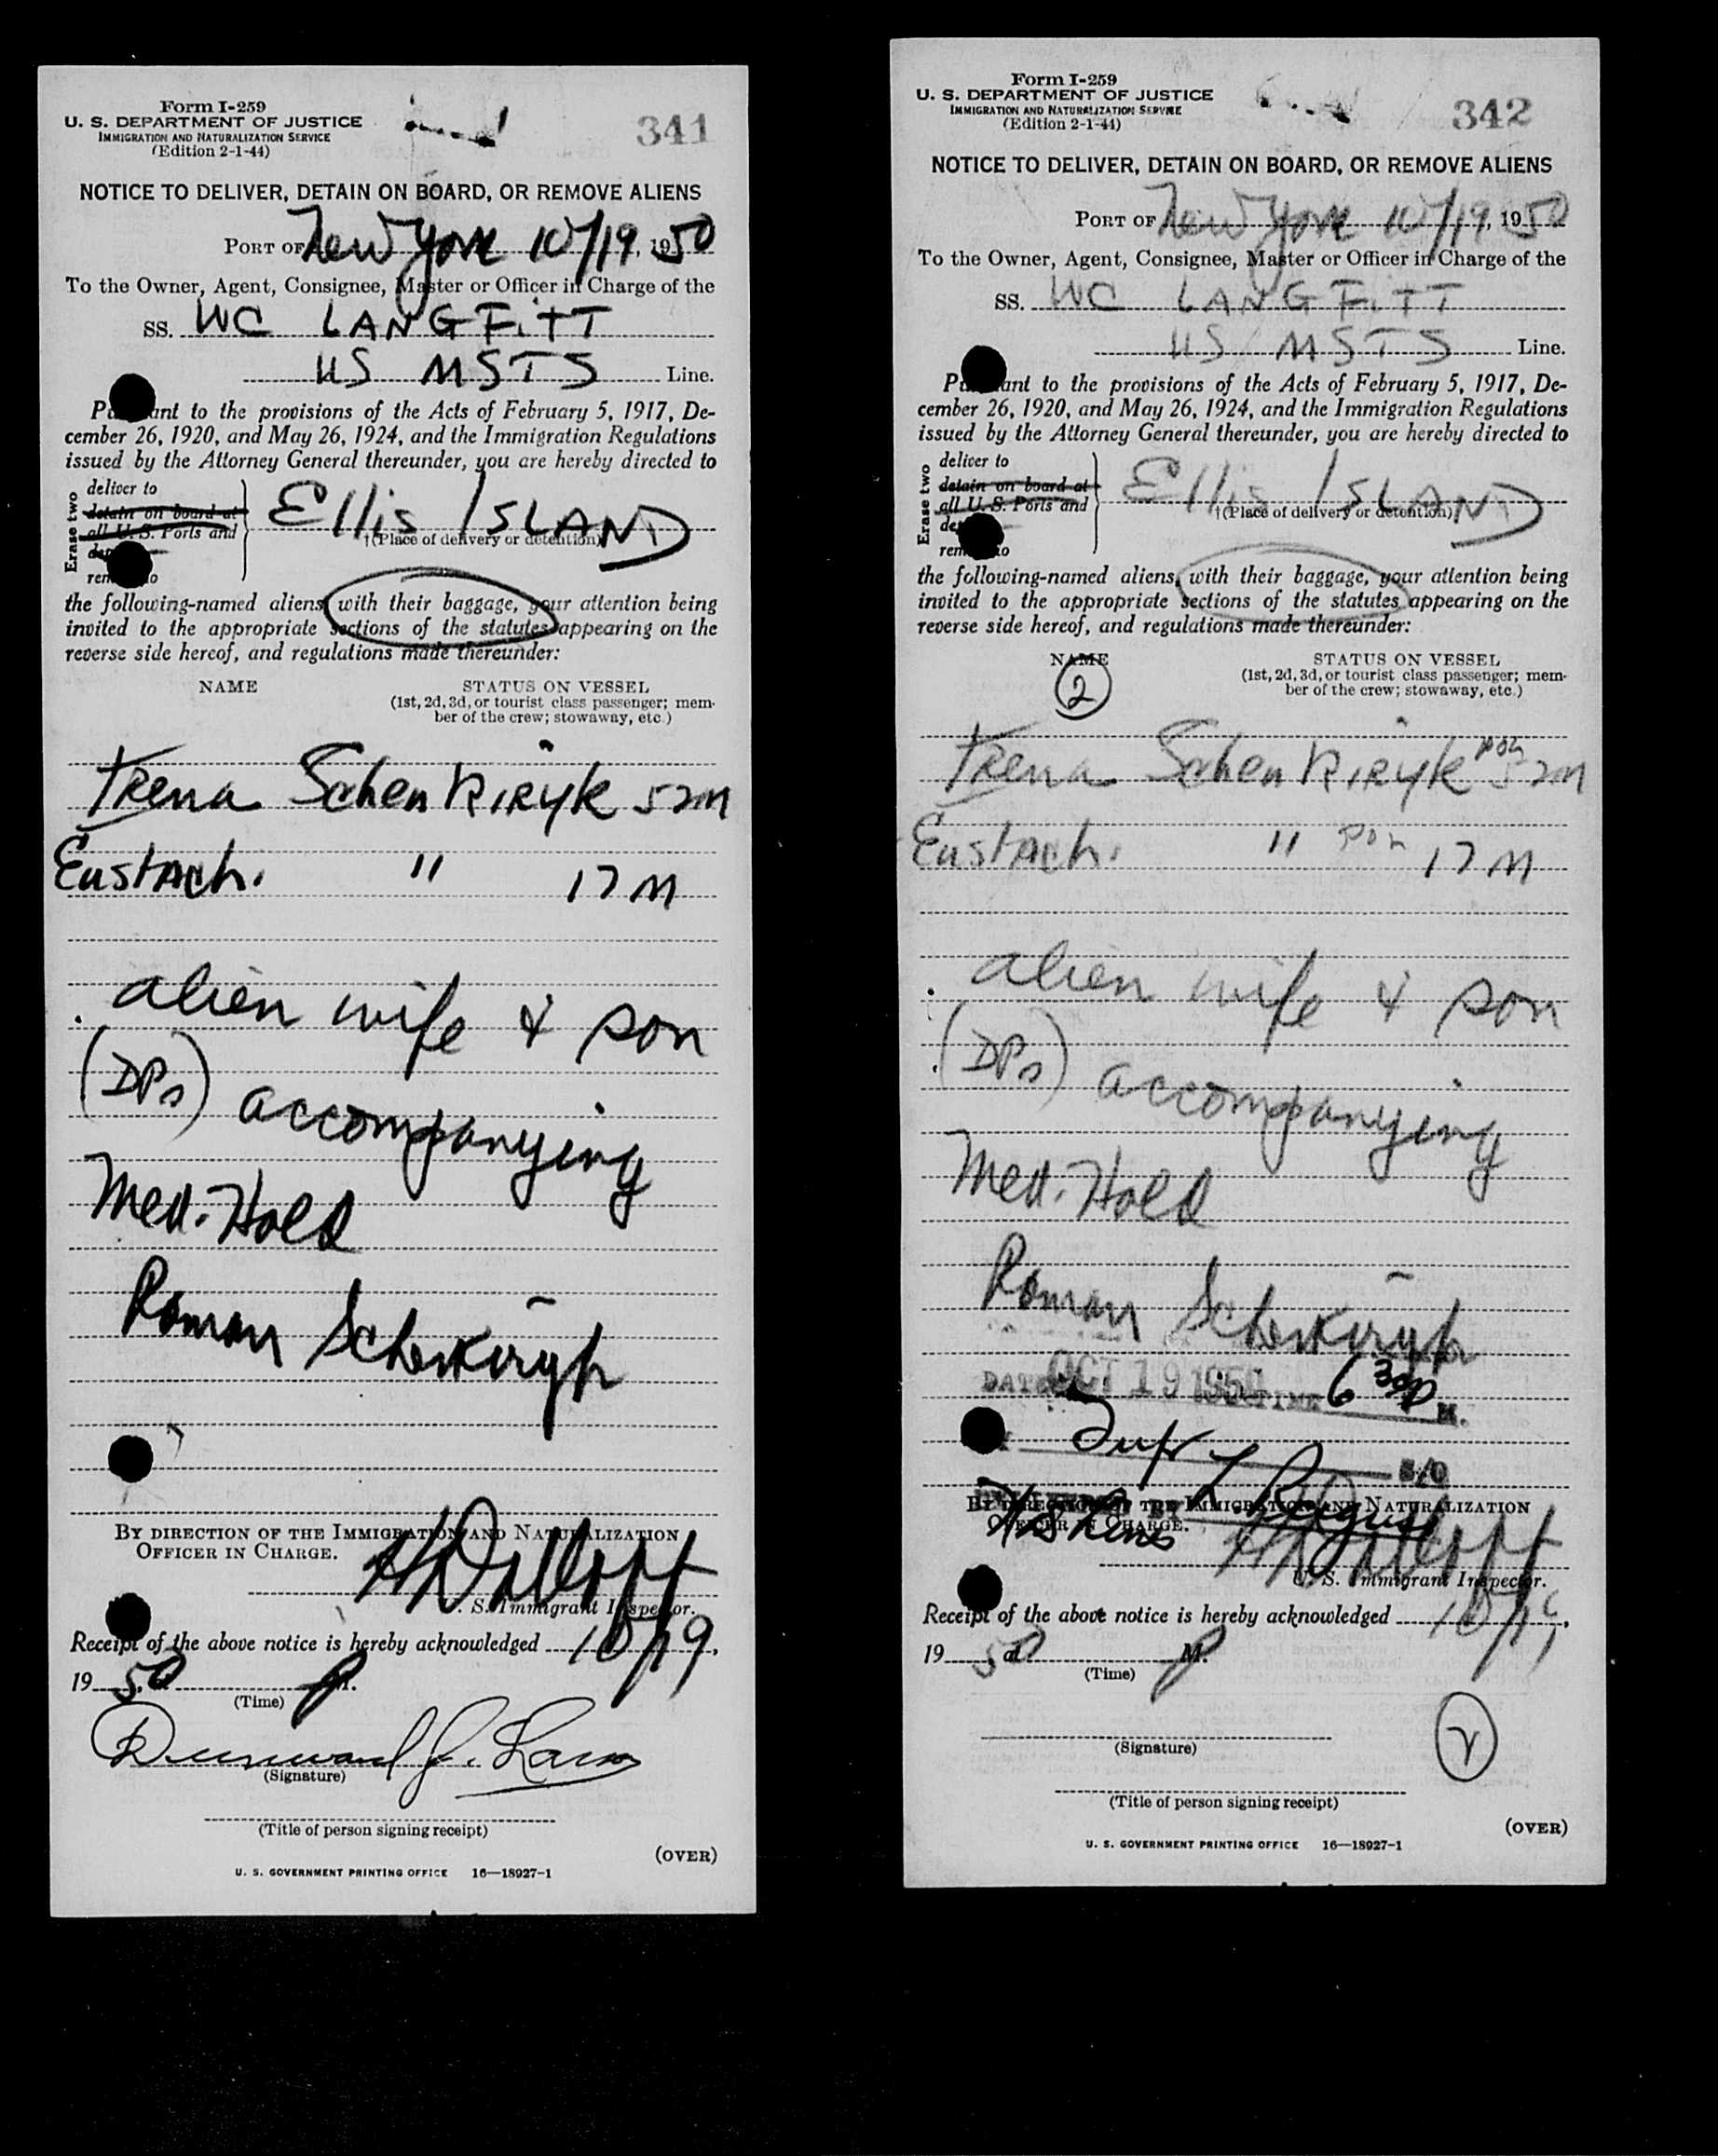 Form I-259
U. S. DEPARTMENT OF JUSTICE
IMMIGRATION AND NATURALIZATION SERVICE
(Edition 2-1-44)
341
NOTICE TO DELIVER, DETAIN ON BOARD, OR REMOVE ALIENS
PORT OF New York 10/19, 1950
To the Owner, Agent, Consignee, Master or Officer in Charge of the
SS. WC LANGFITT
US MSTS Line.
Pu ant to the provisions of the Acts of February 5, 1917, De-
cember 26, 1920, and May 26, 1924, and the Immigration Regulations
issued by the Attorney General thereunder, you are hereby directed to
Erase two
deliver to
detain on board at
all U. S. Ports and
de
rem o
Ellis ISLAND
†(Place of delivery or detention)
the following-named aliens, with their baggage, your attention being
invited to the appropriate sections of the statutes appearing on the
reverse side hereof, and regulations made thereunder:
NAME
STATUS ON VESSEL
(1st, 2d, 3d, or tourist class passenger; mem-
ber of the crew; stowaway, etc.)
Irena Schenkiryk 52m
Eustach. " 17 M
alien wife & son
(DPs) accompanying
Med. Hold
Roman
BY DIRECTION OF THE IMMIGRATION AND NATURALIZATION
OFFICER IN CHARGE.
U. S. Immigrant Inspector.
Receipt of the above notice is hereby acknowledged 10/19,
1950, at P M.
(Time)
(Signature)
(Title of person signing receipt)
(OVER)
U. S. GOVERNMENT PRINTING OFFICE 16—18927-1
Form I-259
U. S. DEPARTMENT OF JUSTICE
IMMIGRATION AND NATURALIZATION SERVICE
(Edition 2-1-44)
342
NOTICE TO DELIVER, DETAIN ON BOARD, OR REMOVE ALIENS
PORT OF New York 10/19, 1950
To the Owner, Agent, Consignee, Master or Officer in Charge of the
SS. WC LANGFITT
US MSTS Line.
Pu ant to the provisions of the Acts of February 5, 1917, De-
cember 26, 1920, and May 26, 1924, and the Immigration Regulations
issued by the Attorney General thereunder, you are hereby directed to
Erase two
deliver to
detain on board at
all U. S. Ports and
de
rem o
Ellis ISLAND
†(Place of delivery or detention)
the following-named aliens, with their baggage, your attention being
invited to the appropriate sections of the statutes appearing on the
reverse side hereof, and regulations made thereunder:
NAME
2
STATUS ON VESSEL
(1st, 2d, 3d, or tourist class passenger; mem-
ber of the crew; stowaway, etc.)
Irena Schenkiryk 52m
Eustach. " 17 M
alien wife & son
(DPs) accompanying
Med. Hold
Roman
DATE OCT 19 1950 TIME 6 30 P M.
S/O
BY DIRECTION OF THE IMMIGRATION AND NATURALIZATION
OFFICER IN CHARGE.
U. S. Immigrant Inspector.
Receipt of the above notice is hereby acknowledged 10/19,
1950, at P M.
(Time)
(Signature)
(Title of person signing receipt)
(OVER)
U. S. GOVERNMENT PRINTING OFFICE 16—18927-1